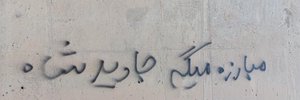 مبارزه میگه جاوید شاه